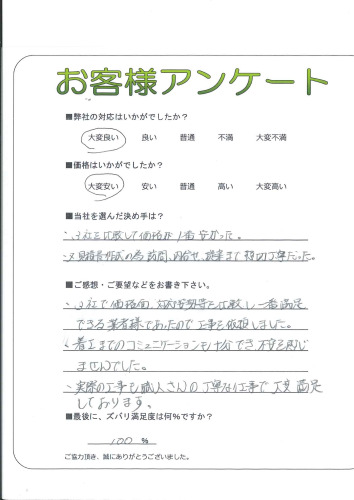 お客様アンケート
■弊社の対応はいかがでしたか？
大変良い 良い 普通 不満 大変不満
■価格はいかがでしたか？
大変安い 安い 普通 高い 大変高い
■当社を選んだ決め手は？
・3社を比較して価格が1番安かった。
・又見積書作成の為 訪問、内容せ、提案まで 親切丁寧だった。
■ご感想・ご要望などをお書き下さい。
・3社で価格面、対応姿勢等を比較し一番満足
できる業者様であったので工事を依頼しました。
・着工までのコミュニケーションも十分でき、不安を感じ
ませんでした。
・実際の工事も職人さんの丁寧な工事で大変満足
しております。
■最後に、ズバリ満足度は何%ですか？
100 %
ご協力頂き、誠にありがとうございました。